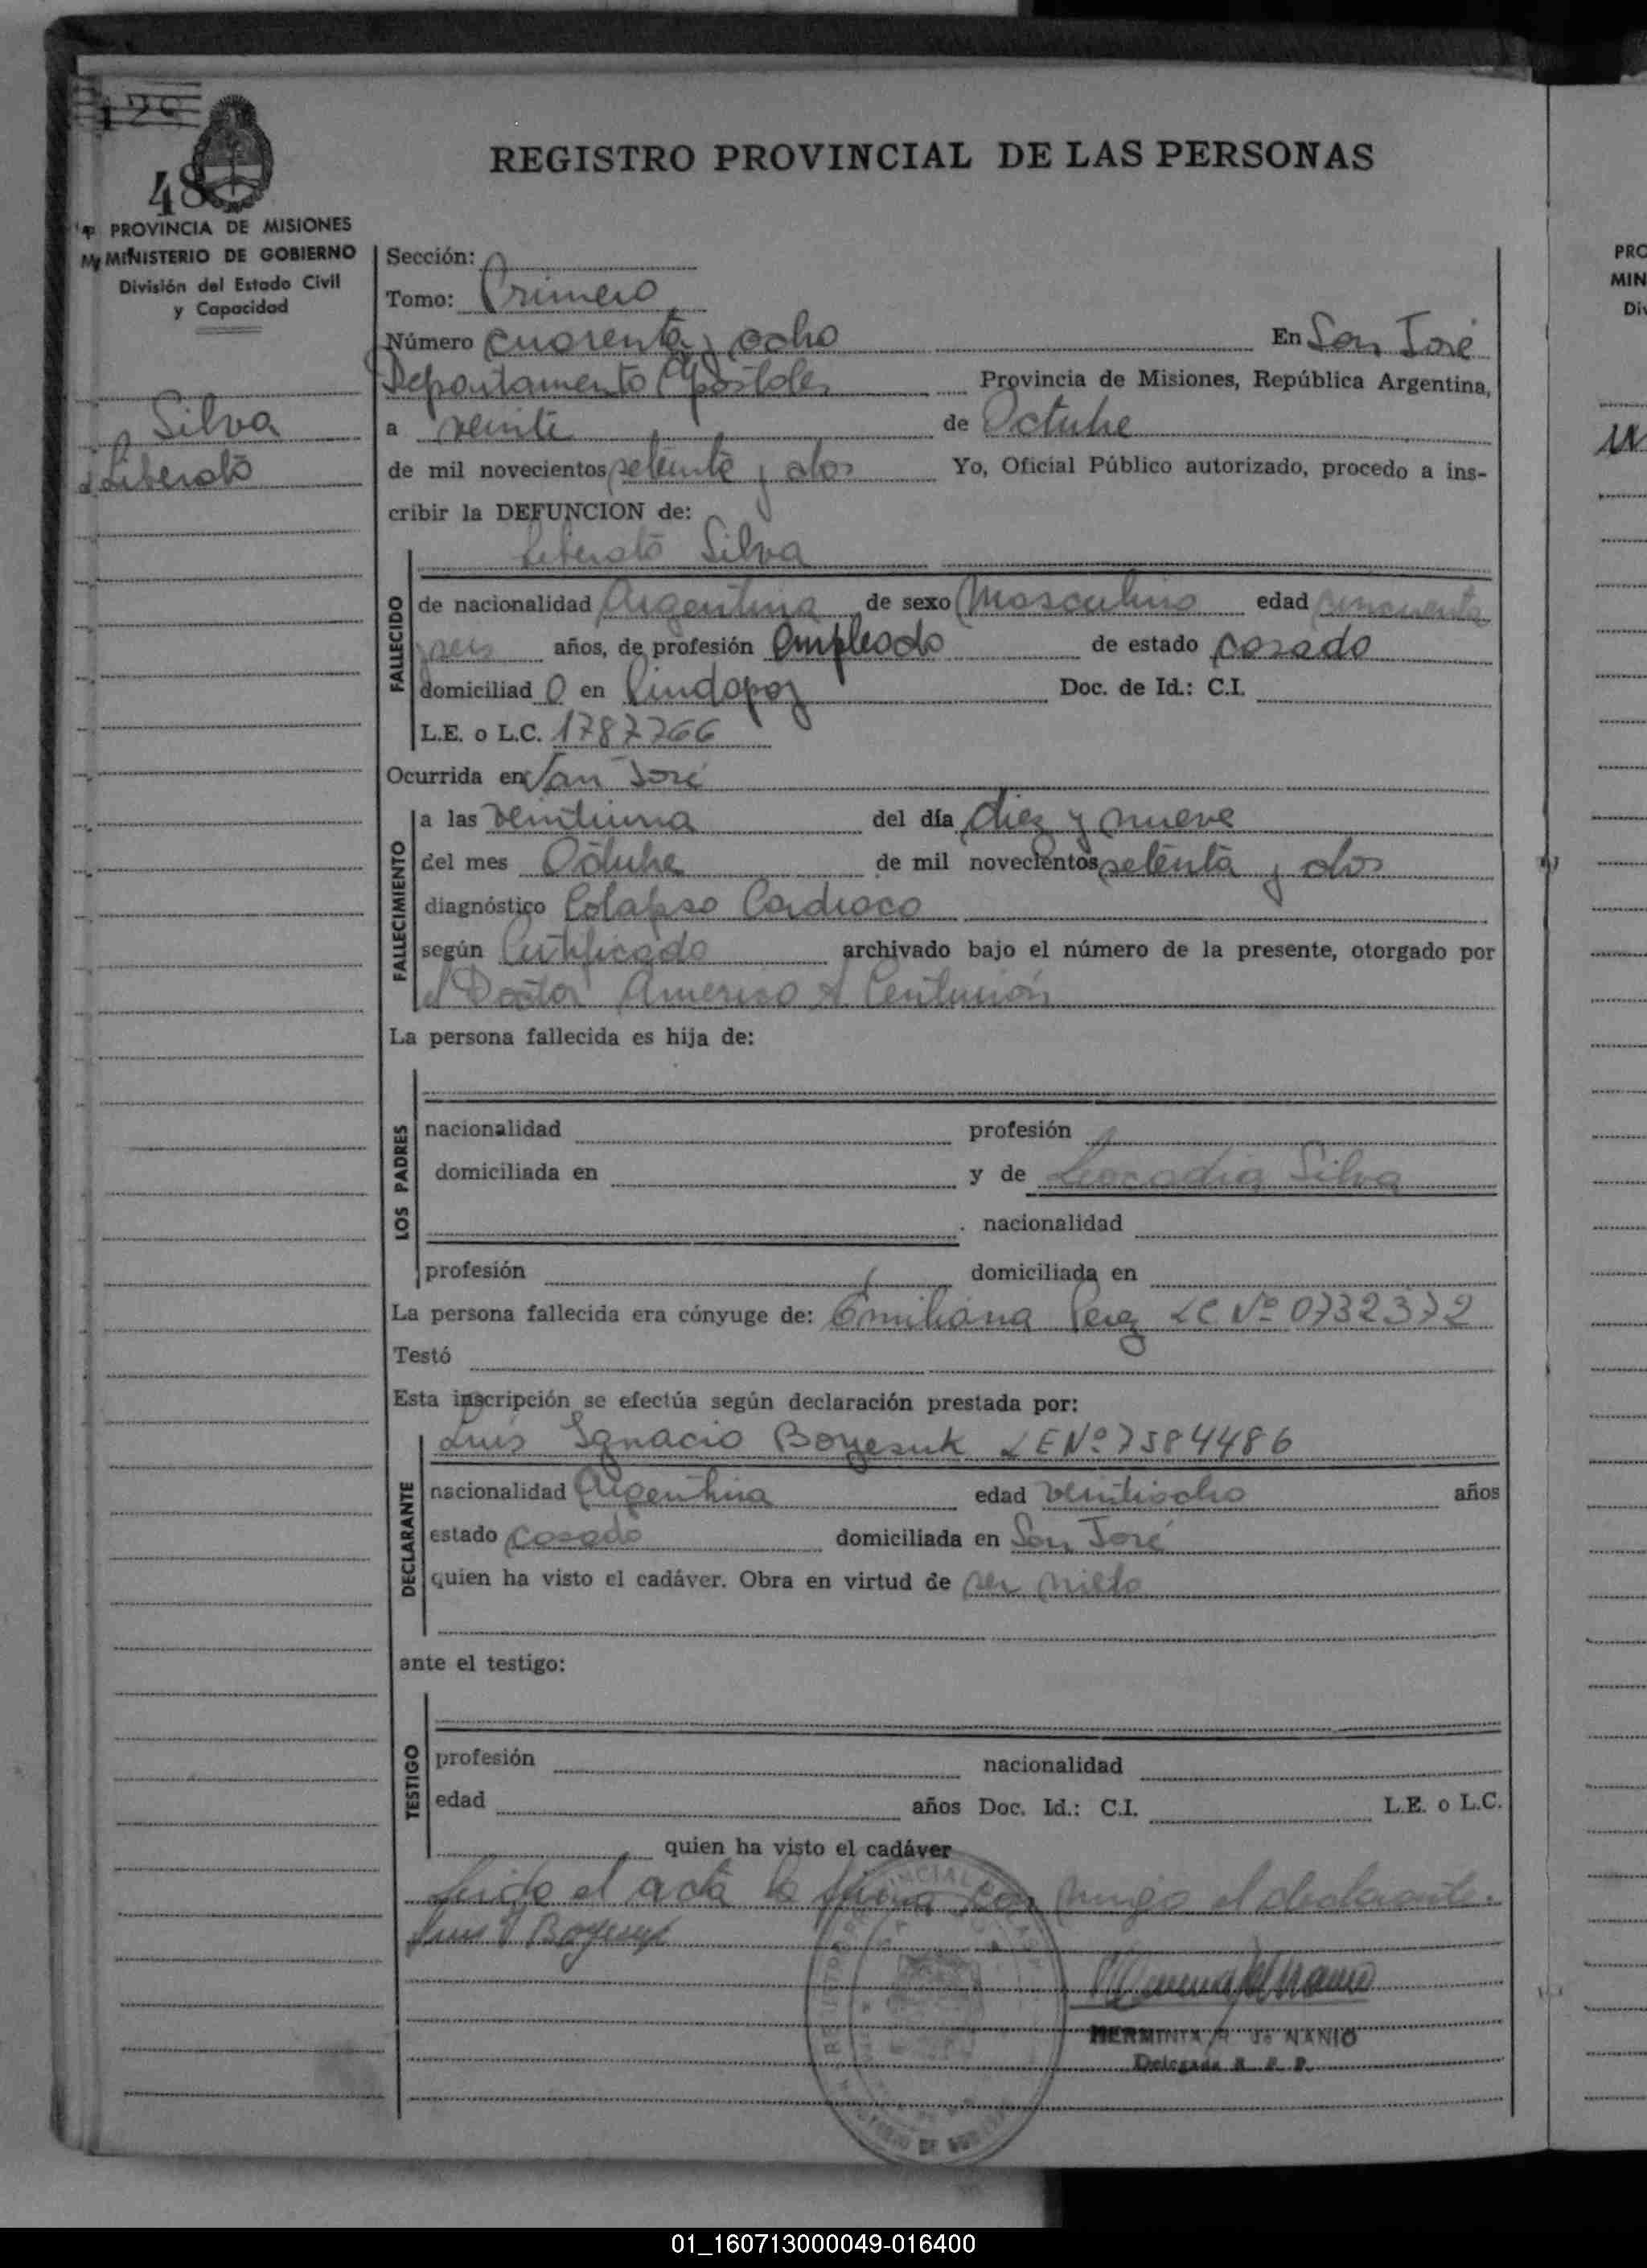 129
48
REGISTRO PROVINCIAL DE LAS PERSONAS
PROVINCIA DE MISIONES
MINISTERIO DE GOBIERNO
División del Estado Civil
y Capacidad
Silva
Liberato
Sección:
Tomo: Primero
Número cuarenta y ocho En San José
Departamento Apóstoles Provincia de Misiones, República Argentina,
a veinte de Octubre
de mil novecientos setenta y dos Yo, Oficial Público autorizado, procedo a ins-
cribir la DEFUNCION de:
Liberato Silva
FALLECIDO
de nacionalidad Argentina de sexo Masculino edad cincuenta
y seis años, de profesión Empleado de estado casado
domiciliad o en Pindapoy Doc. de Id.: C.I.
L.E. o L.C. 1787766
Ocurrida en San José
FALLECIMIENTO
a las veintiuna del día diez y nueve
del mes Octubre de mil novecientos setenta y dos
diagnóstico Colapso Cardiaco
según Certificado archivado bajo el número de la presente, otorgado por
el Doctor Americo A Centurión
La persona fallecida es hija de:
LOS PADRES
nacionalidad profesión
domiciliada en y de Leocadia Silva
nacionalidad
profesión domiciliada en
La persona fallecida era cónyuge de: Emiliana Perez LC Nº 0732372
Testó
Esta inscripción se efectúa según declaración prestada por:
Luis Ignacio Boyesuk LE Nº 7584486
DECLARANTE
nacionalidad Argentina edad veintiocho años
estado casado domiciliada en San José
quien ha visto el cadáver. Obra en virtud de ser nieto
ante el testigo:
TESTIGO
profesión nacionalidad
edad años Doc. Id.: C.I. L.E. o L.C.
quien ha visto el cadáver
Leida el acta la firma con migo el declarante.
Luis I Boyesuk
HERMINIA de NANIO
Delegada R. P. P.
PRO
MIN
Div
01_160713000049-016400